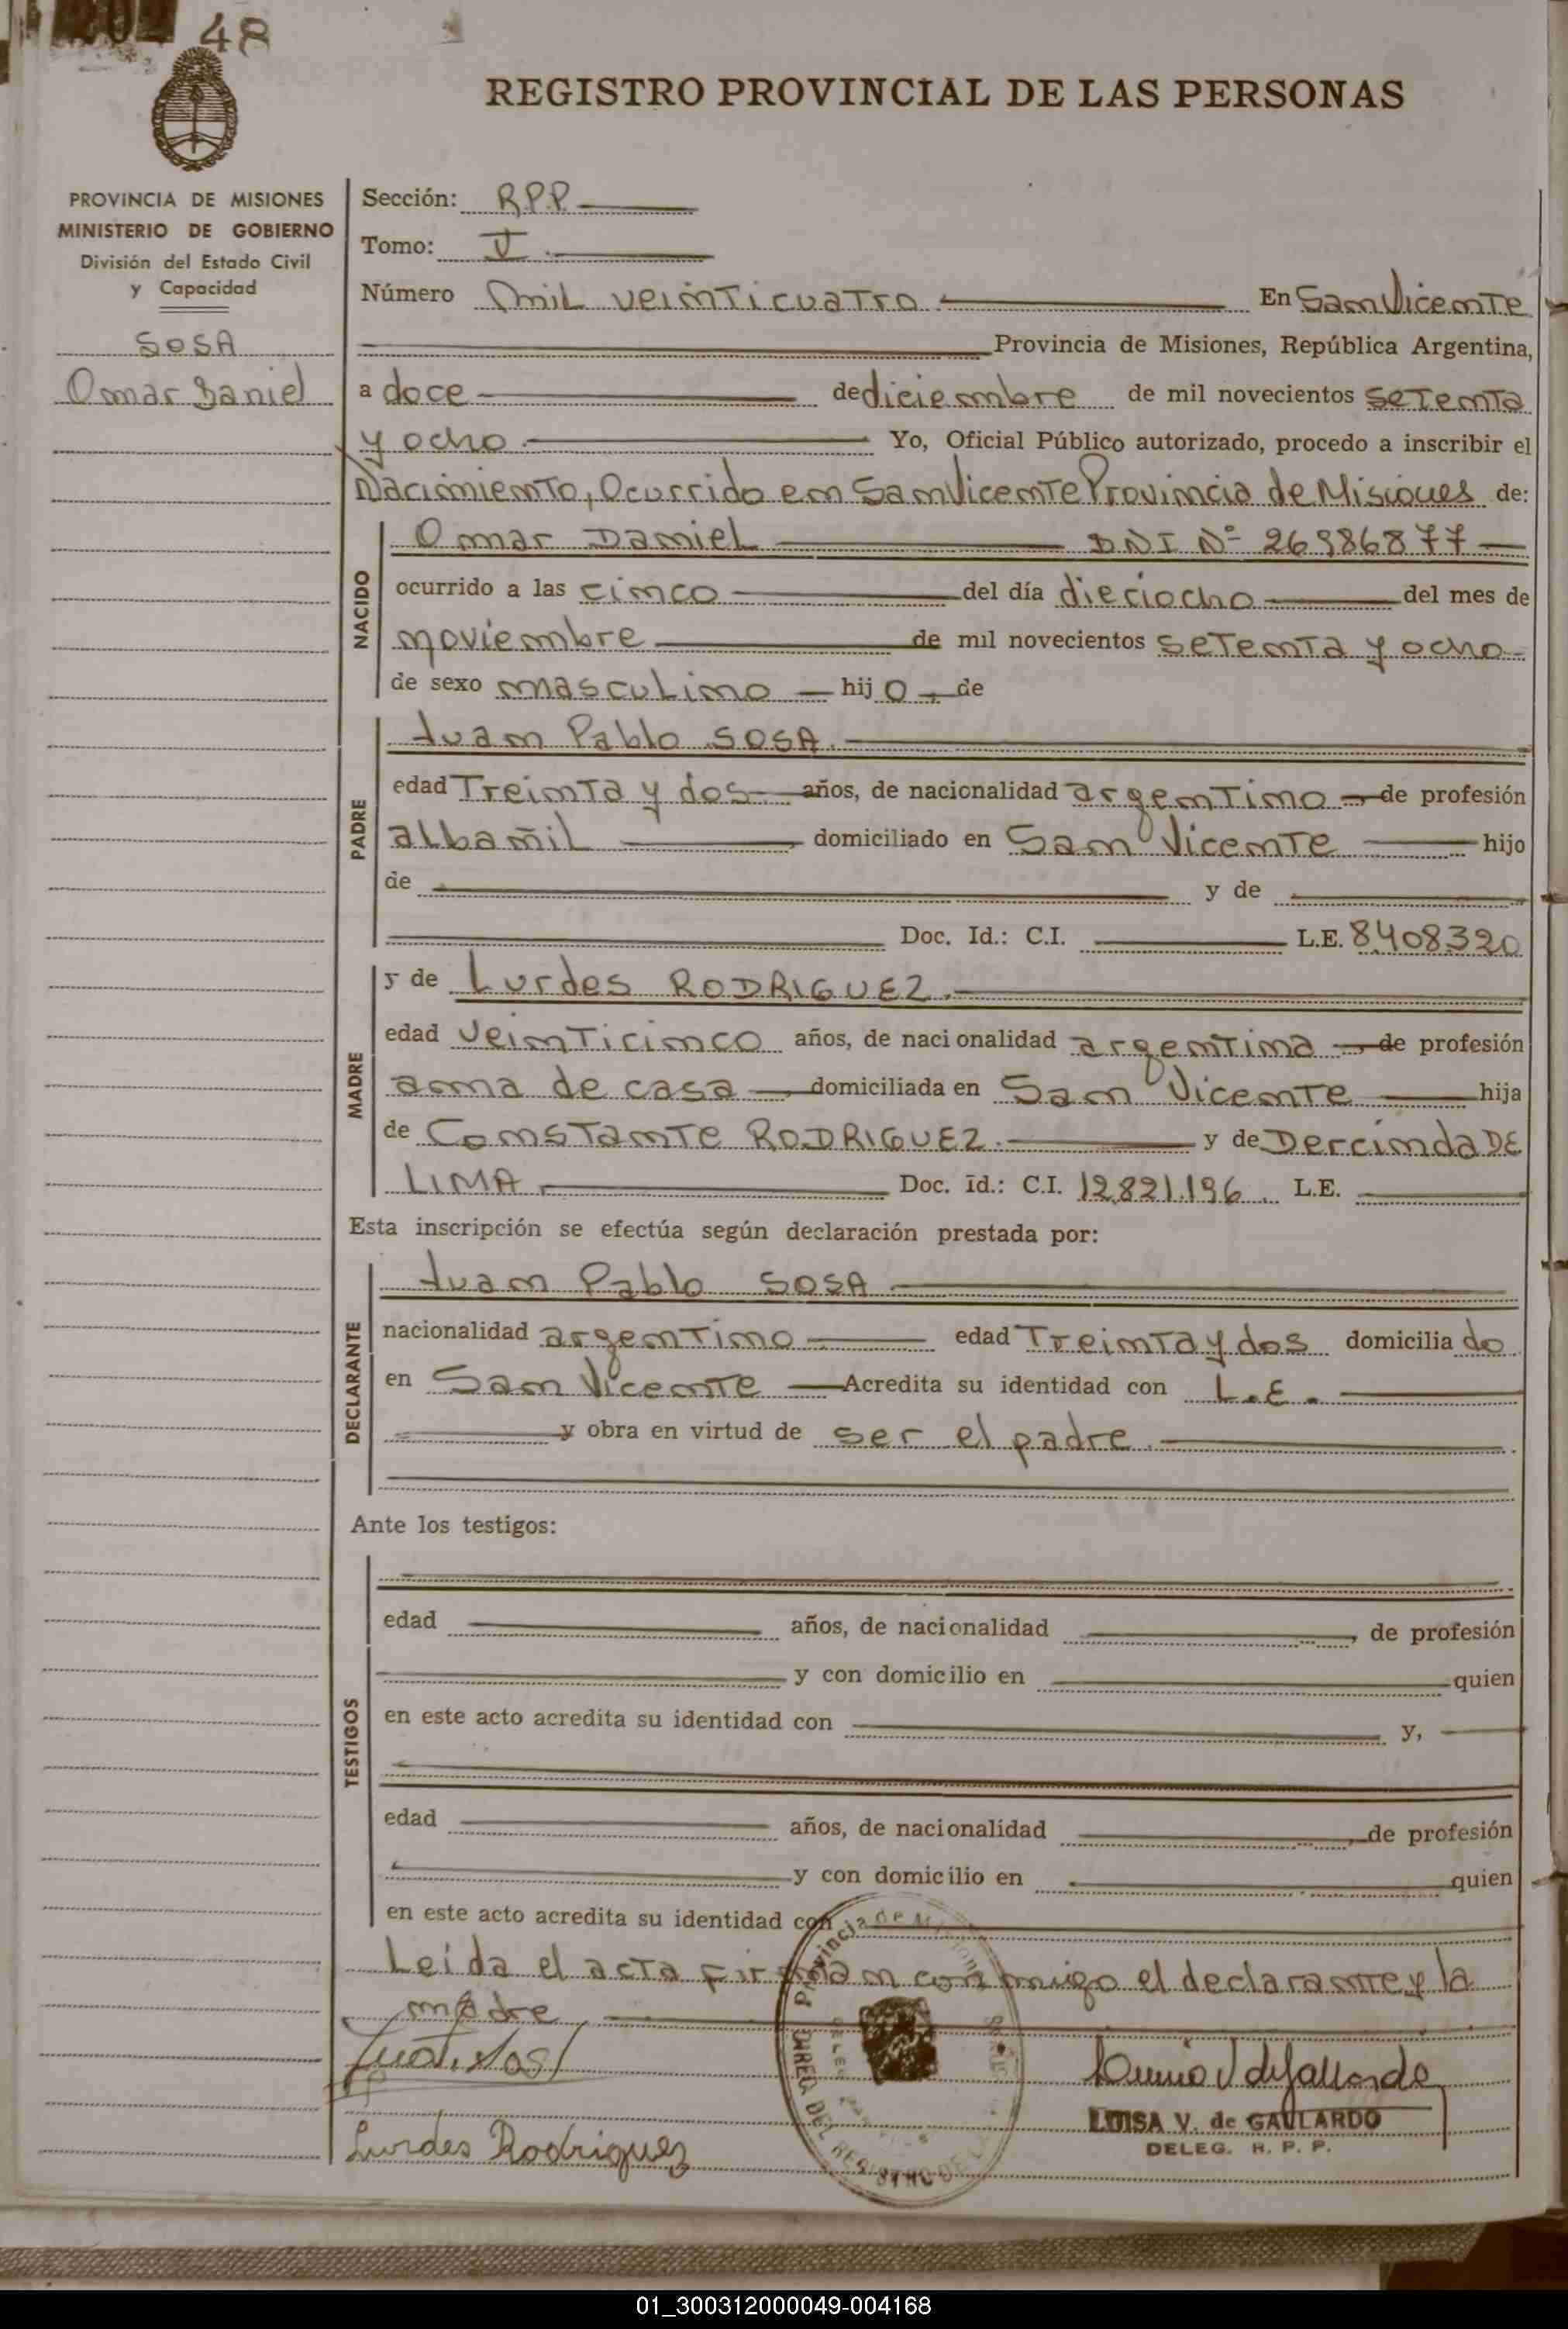 48
REGISTRO PROVINCIAL DE LAS PERSONAS
PROVINCIA DE MISIONES
MINISTERIO DE GOBIERNO
División del Estado Civil
y Capacidad
SOSA
Omar Daniel
Sección: R.P.P.
Tomo: V
Número mil veinticuatro En San Vicente
Provincia de Misiones, República Argentina,
a doce de diciembre de mil novecientos setenta
y ocho. Yo, Oficial Público autorizado, procedo a inscribir el
Nacimiento, Ocurrido en San Vicente Provincia de Misiones de:
NACIDO
Omar Daniel DNI Nº 26986877
ocurrido a las cinco del día dieciocho del mes de
noviembre de mil novecientos setenta y ocho
de sexo masculino hijo, de
PADRE
Juan Pablo SOSA.
edad Treinta y dos años, de nacionalidad argentino, de profesión
albañil, domiciliado en San Vicente hijo
de y de
Doc. Id.: C.I. L.E. 8.408.320
MADRE
y de Lurdes RODRIGUEZ.
edad veinticinco años, de nacionalidad argentina, de profesión
ama de casa, domiciliada en San Vicente hija
de Constante RODRIGUEZ. y de Dercinda DE
LIMA Doc. id.: C.I. 12.821.196. L.E.
Esta inscripción se efectúa según declaración prestada por:
DECLARANTE
Juan Pablo SOSA
nacionalidad argentino edad Treinta y dos domiciliado
en San Vicente Acredita su identidad con L.E.
y obra en virtud de ser el padre.
Ante los testigos:
TESTIGOS
edad años, de nacionalidad, de profesión
y con domicilio en quien
en este acto acredita su identidad con y,
edad años, de nacionalidad, de profesión
y con domicilio en quien
en este acto acredita su identidad con
Leida el acta firman conmigo el declarante y la
madre
Lurdes Rodriguez
LUISA V. de GALLARDO
DELEG. R. P. P.
01_300312000049-004168